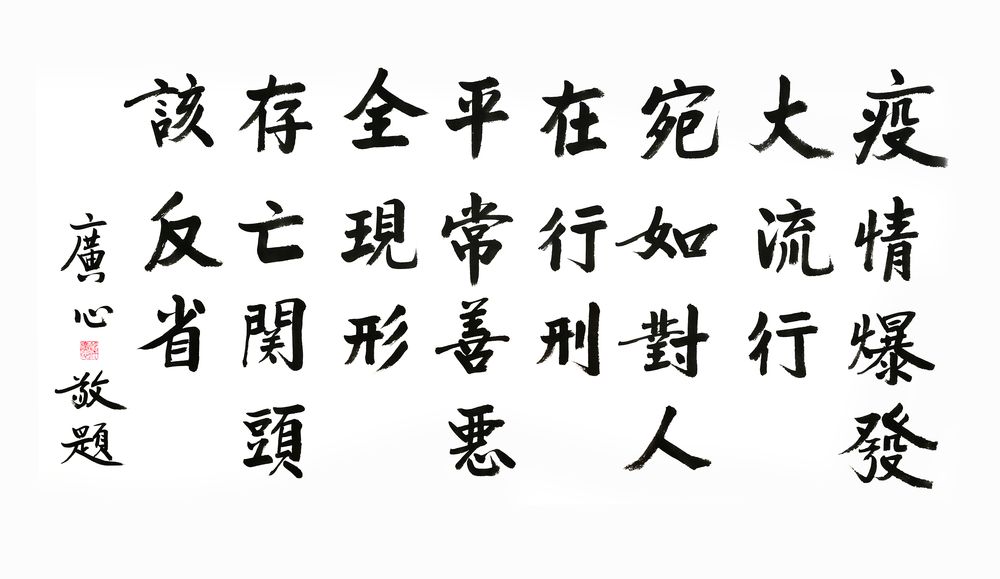 疫情爆發
大流行
宛如對人
在行刑
平常善惡
全現形
存亡関頭
該反省
廣心敬題